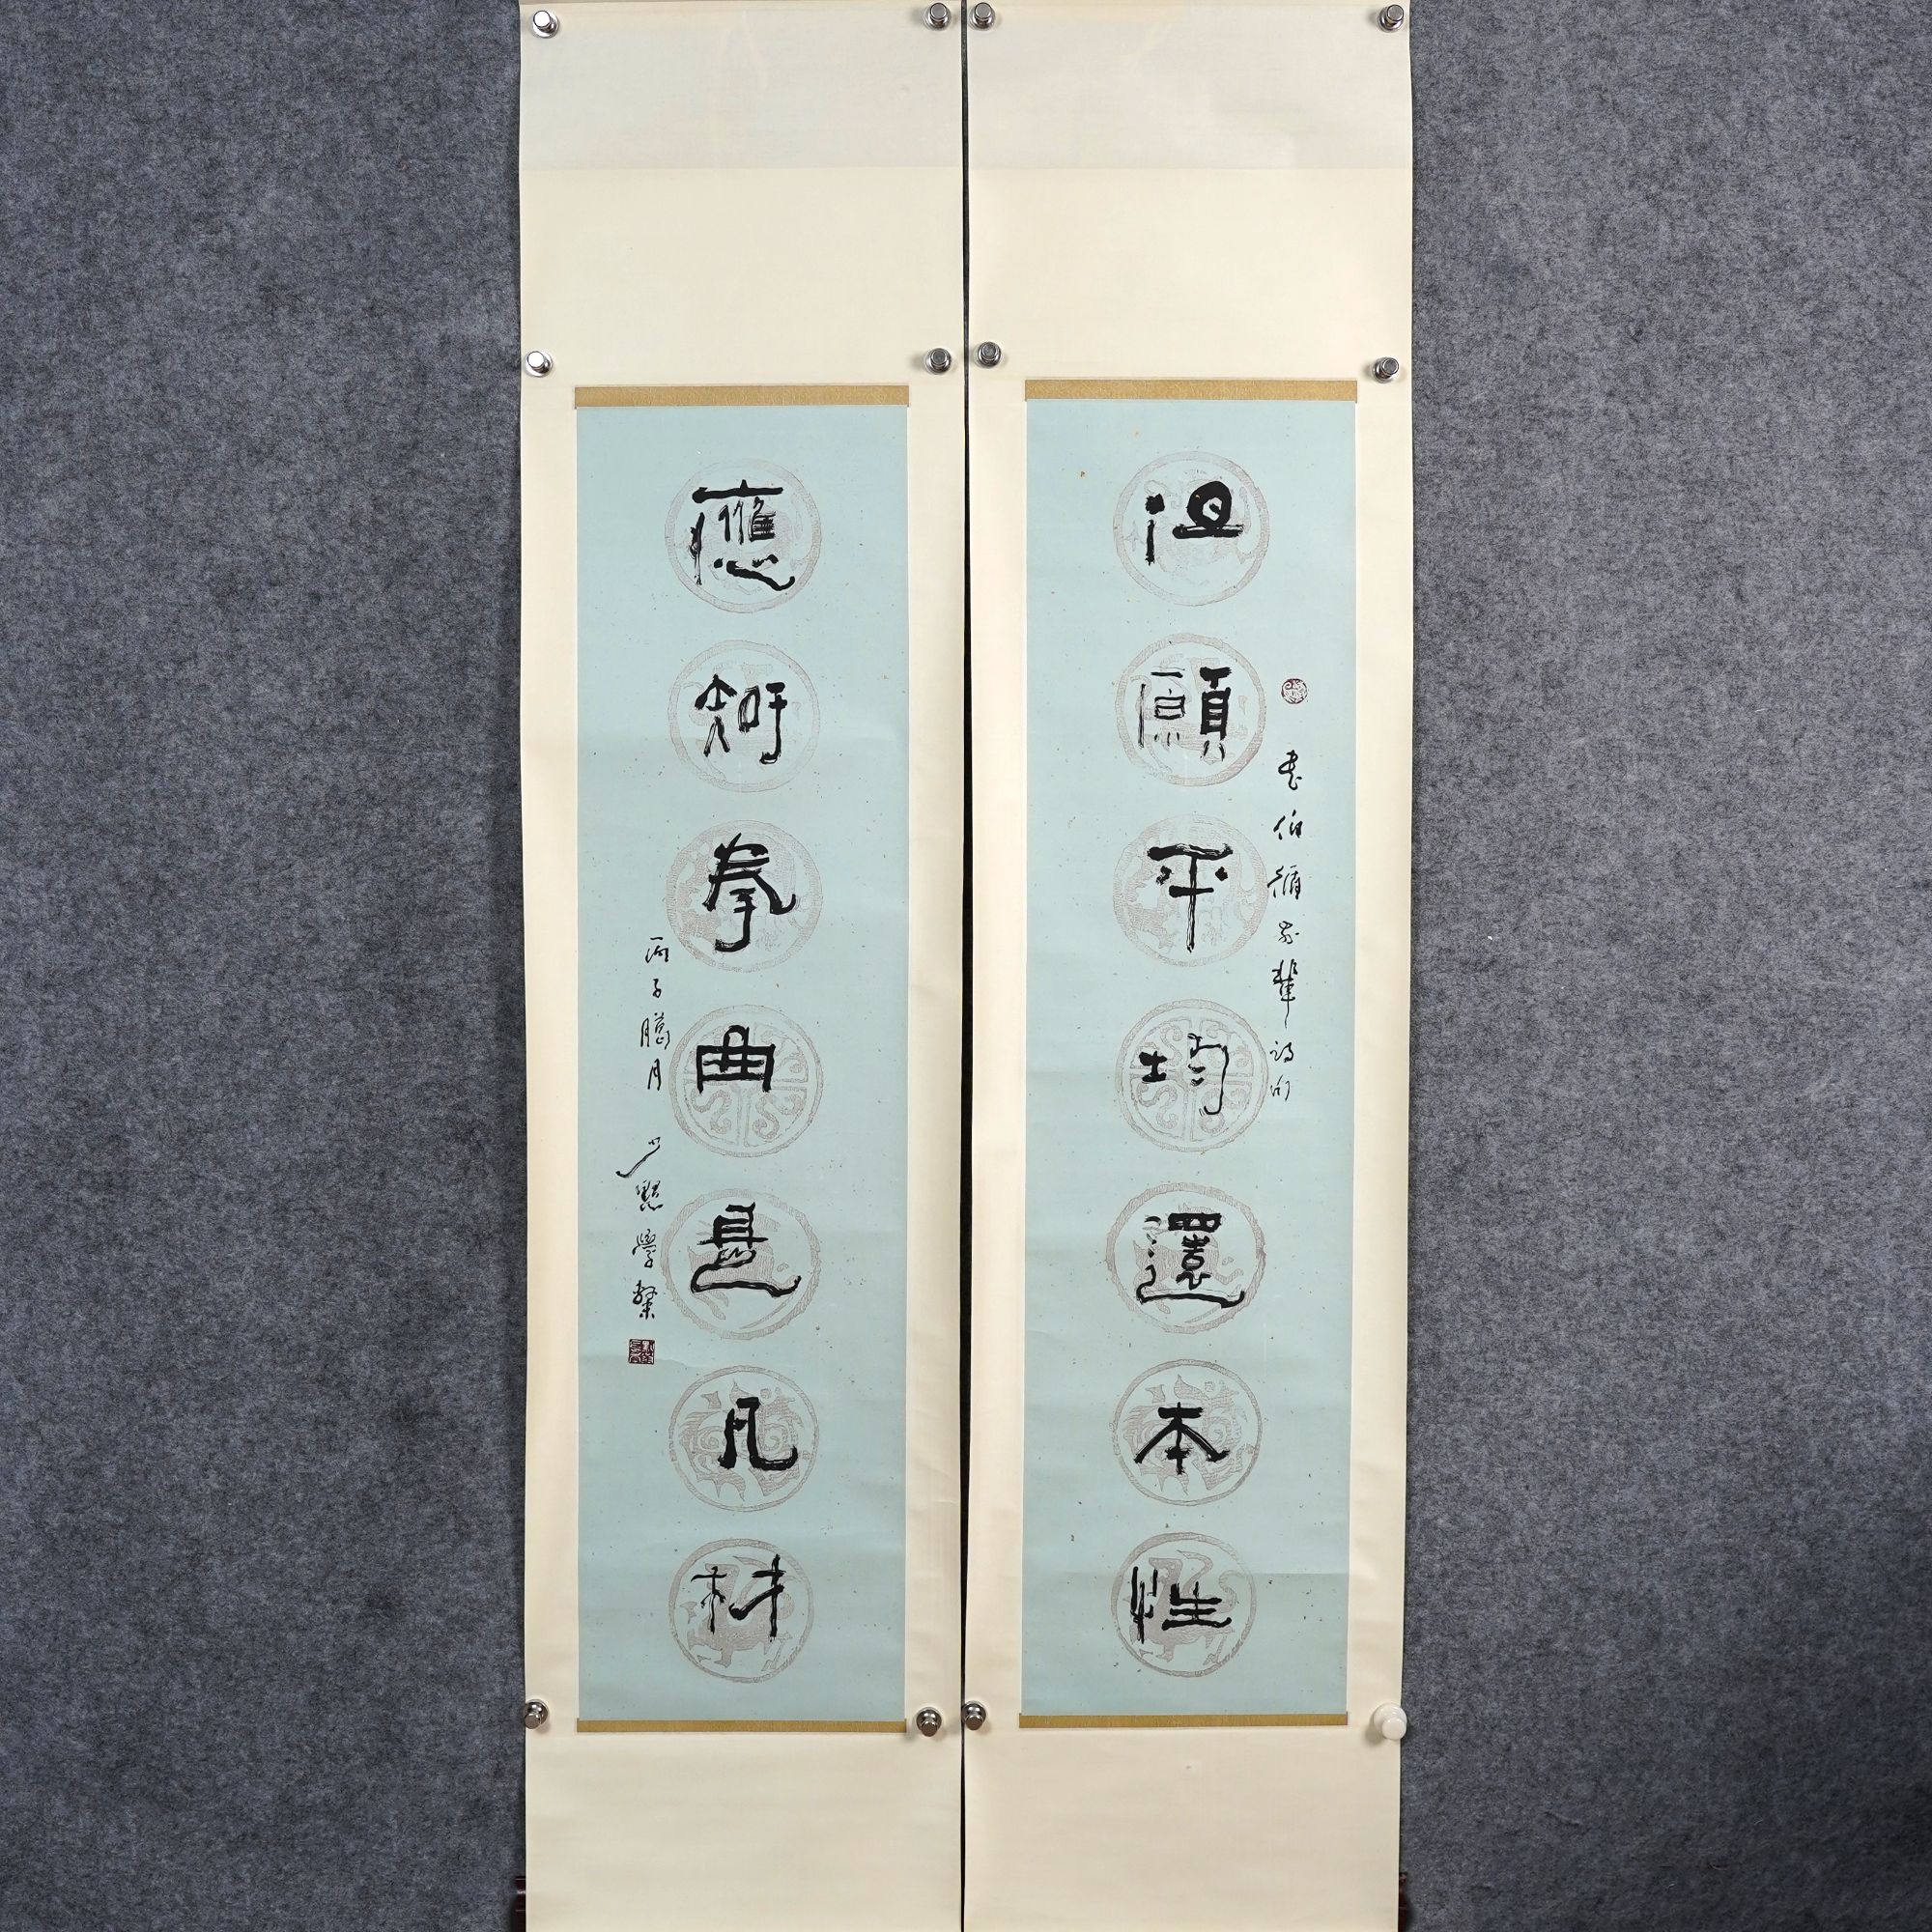 但願平均還本性
書伯循前輩詩句
應知拳曲是凡材
丙子臘月 少黙學槧